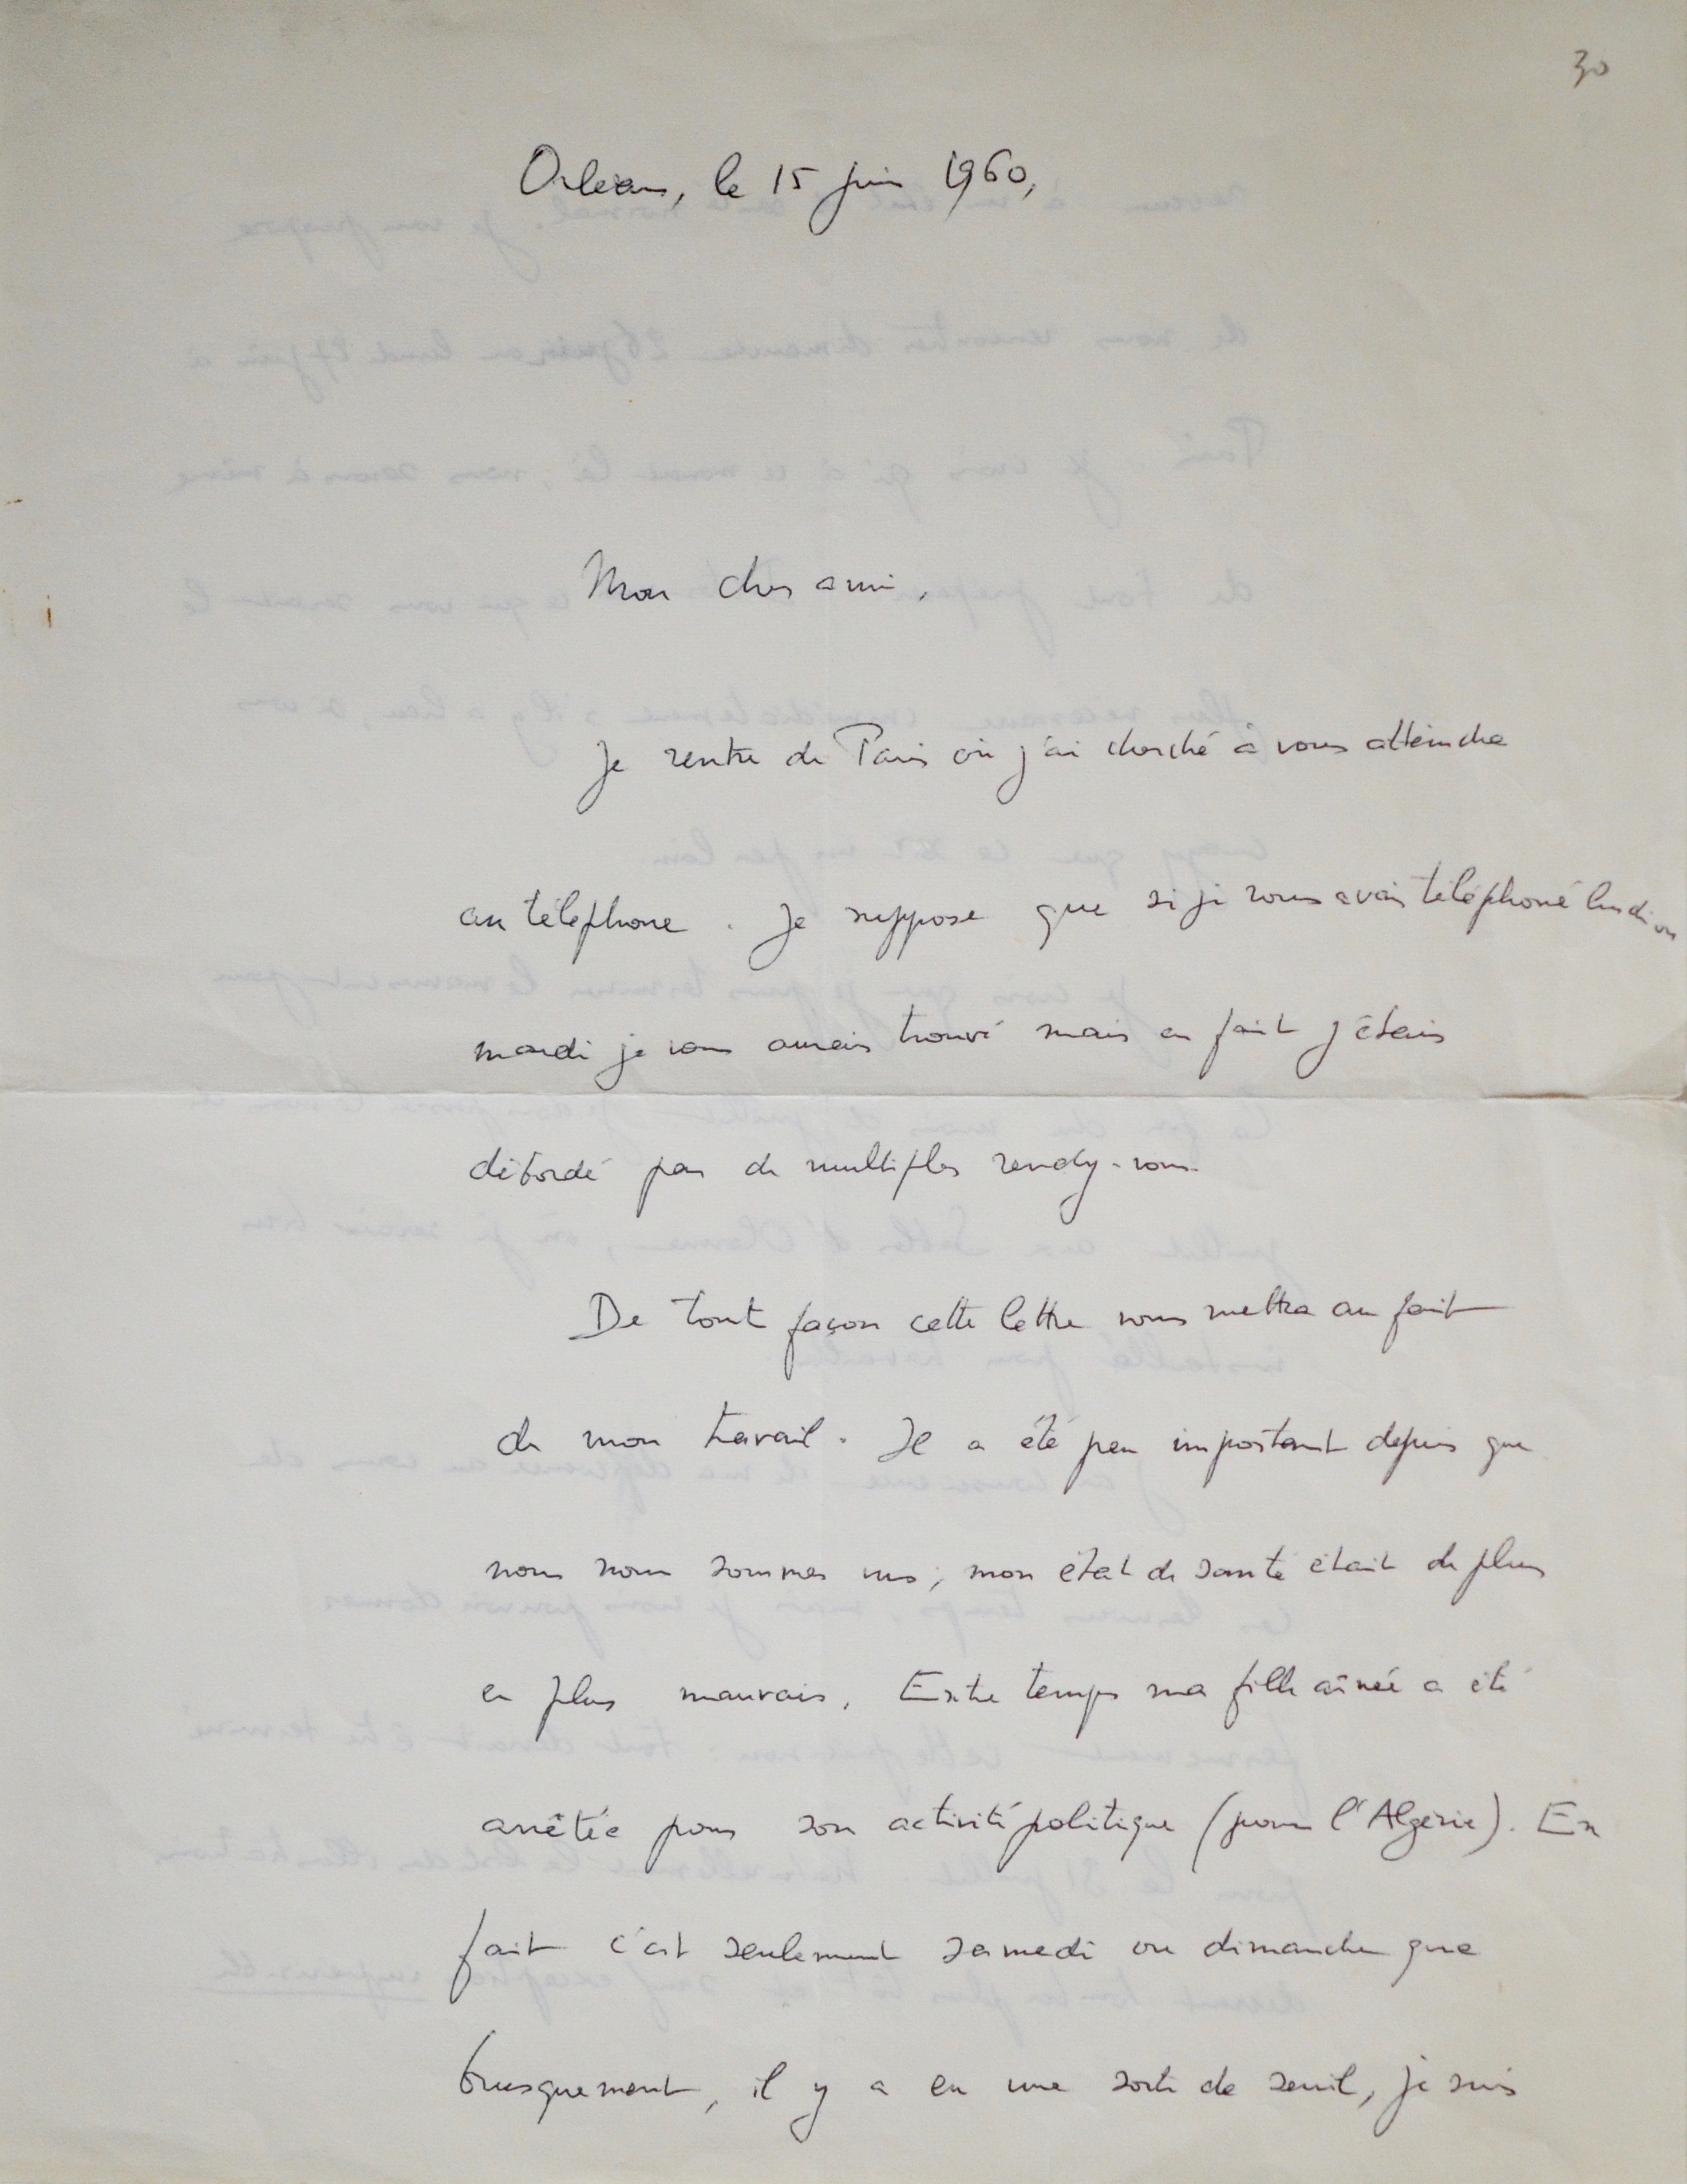 30
Orléans, le 15 juin 1960,
Mon cher ami,
Je rentre de Paris où j'ai cherché à vous atteindre
au téléphone. Je suppose que si je vous avais téléphoné lundi ou
mardi je vous aurais trouvé mais en fait j'étais
débordé par de multiples rendez-vous.
De tout façon cette lettre vous mettra au fait
de mon travail. Il a été peu important depuis que
nous nous sommes vus; mon état de santé était de plus
en plus mauvais. Entre temps ma fille aînée a été
arrêtée pour son activité politique (pour l'Algérie). En
fait c'est seulement samedi ou dimanche que
brusquement, il y a eu une sorte de seuil, je suis